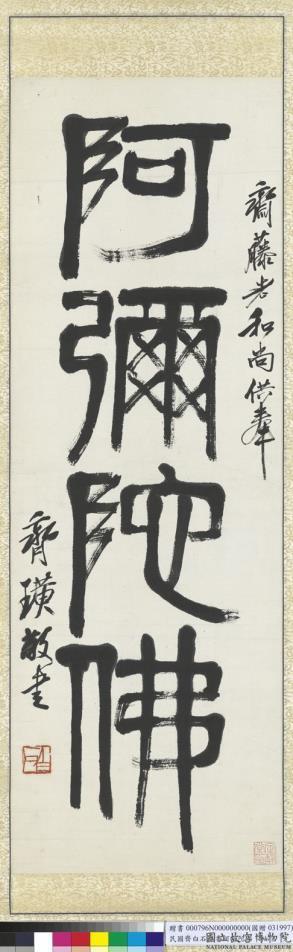 齋藤老和尚供奉
阿彌陀佛
齊璜敬書
白石
贈書000796N000000000(國贈031997)
民國齊白石
國立故宮博物院
NATIONAL PALACE MUSEUM